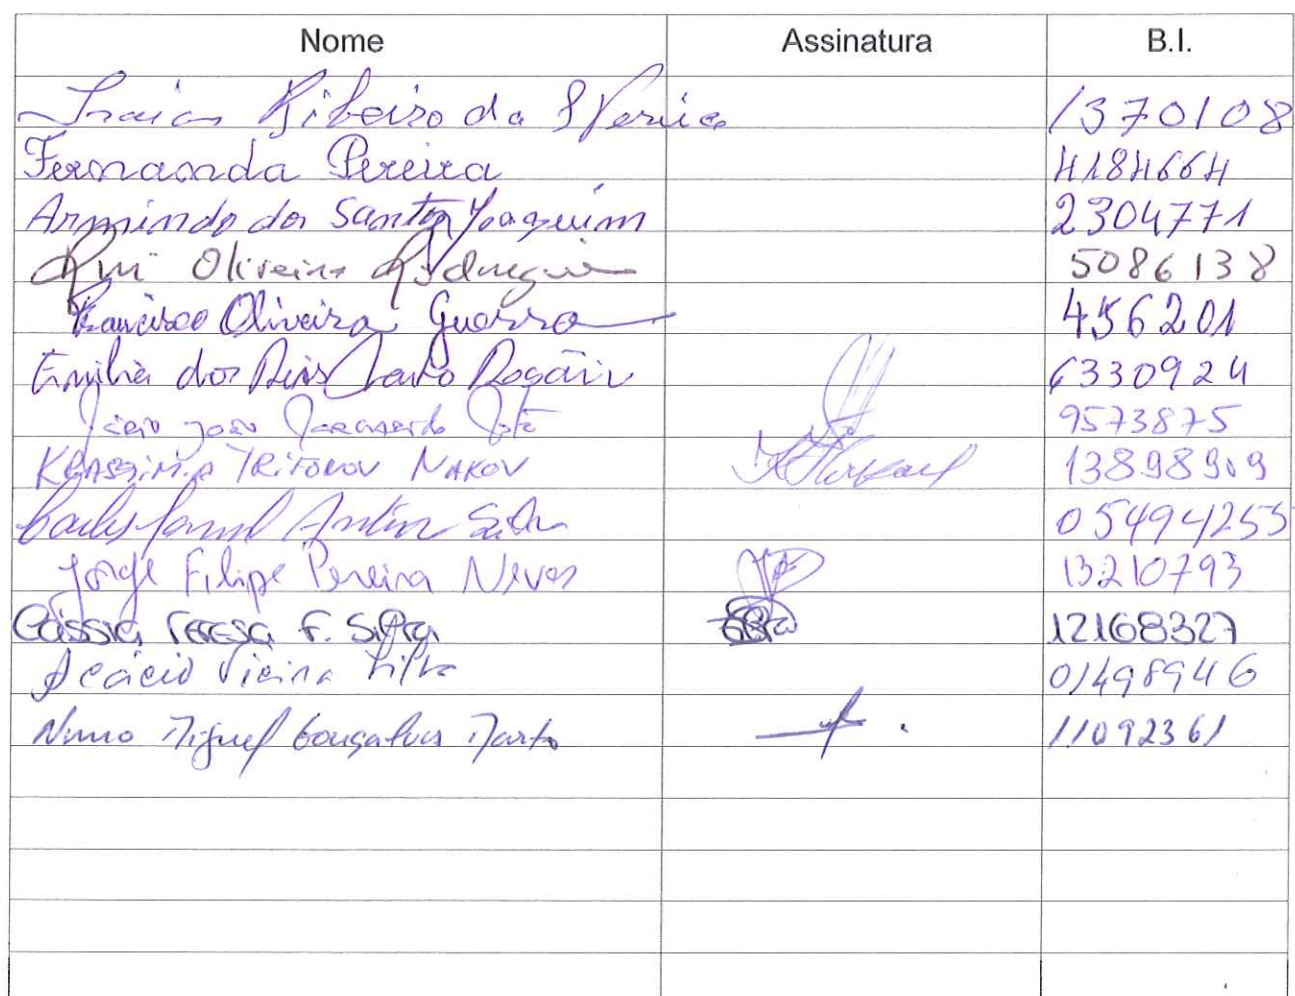 Nome Assinatura B.I.
Isaias Ribeiro da 1370108
Fernanda Pereira 4184664
Armindo dos Santos Joaquim 2304771
Rui Oliveira Rodrigues 5086138
Francisco Oliveira Guerra 456201
Emilia dos Reis 6330924
João 9573875
KRASSIMIR TRIFONOV NAKOV 13898909
Carlos Antón Silva 05494255
Jorge Filipe Pereira Neves 13210793
Cássia Teresa F. Silva 12168327
Acácio Vieira Silva 01498946
Nuno Miguel Gonçalves 11092361